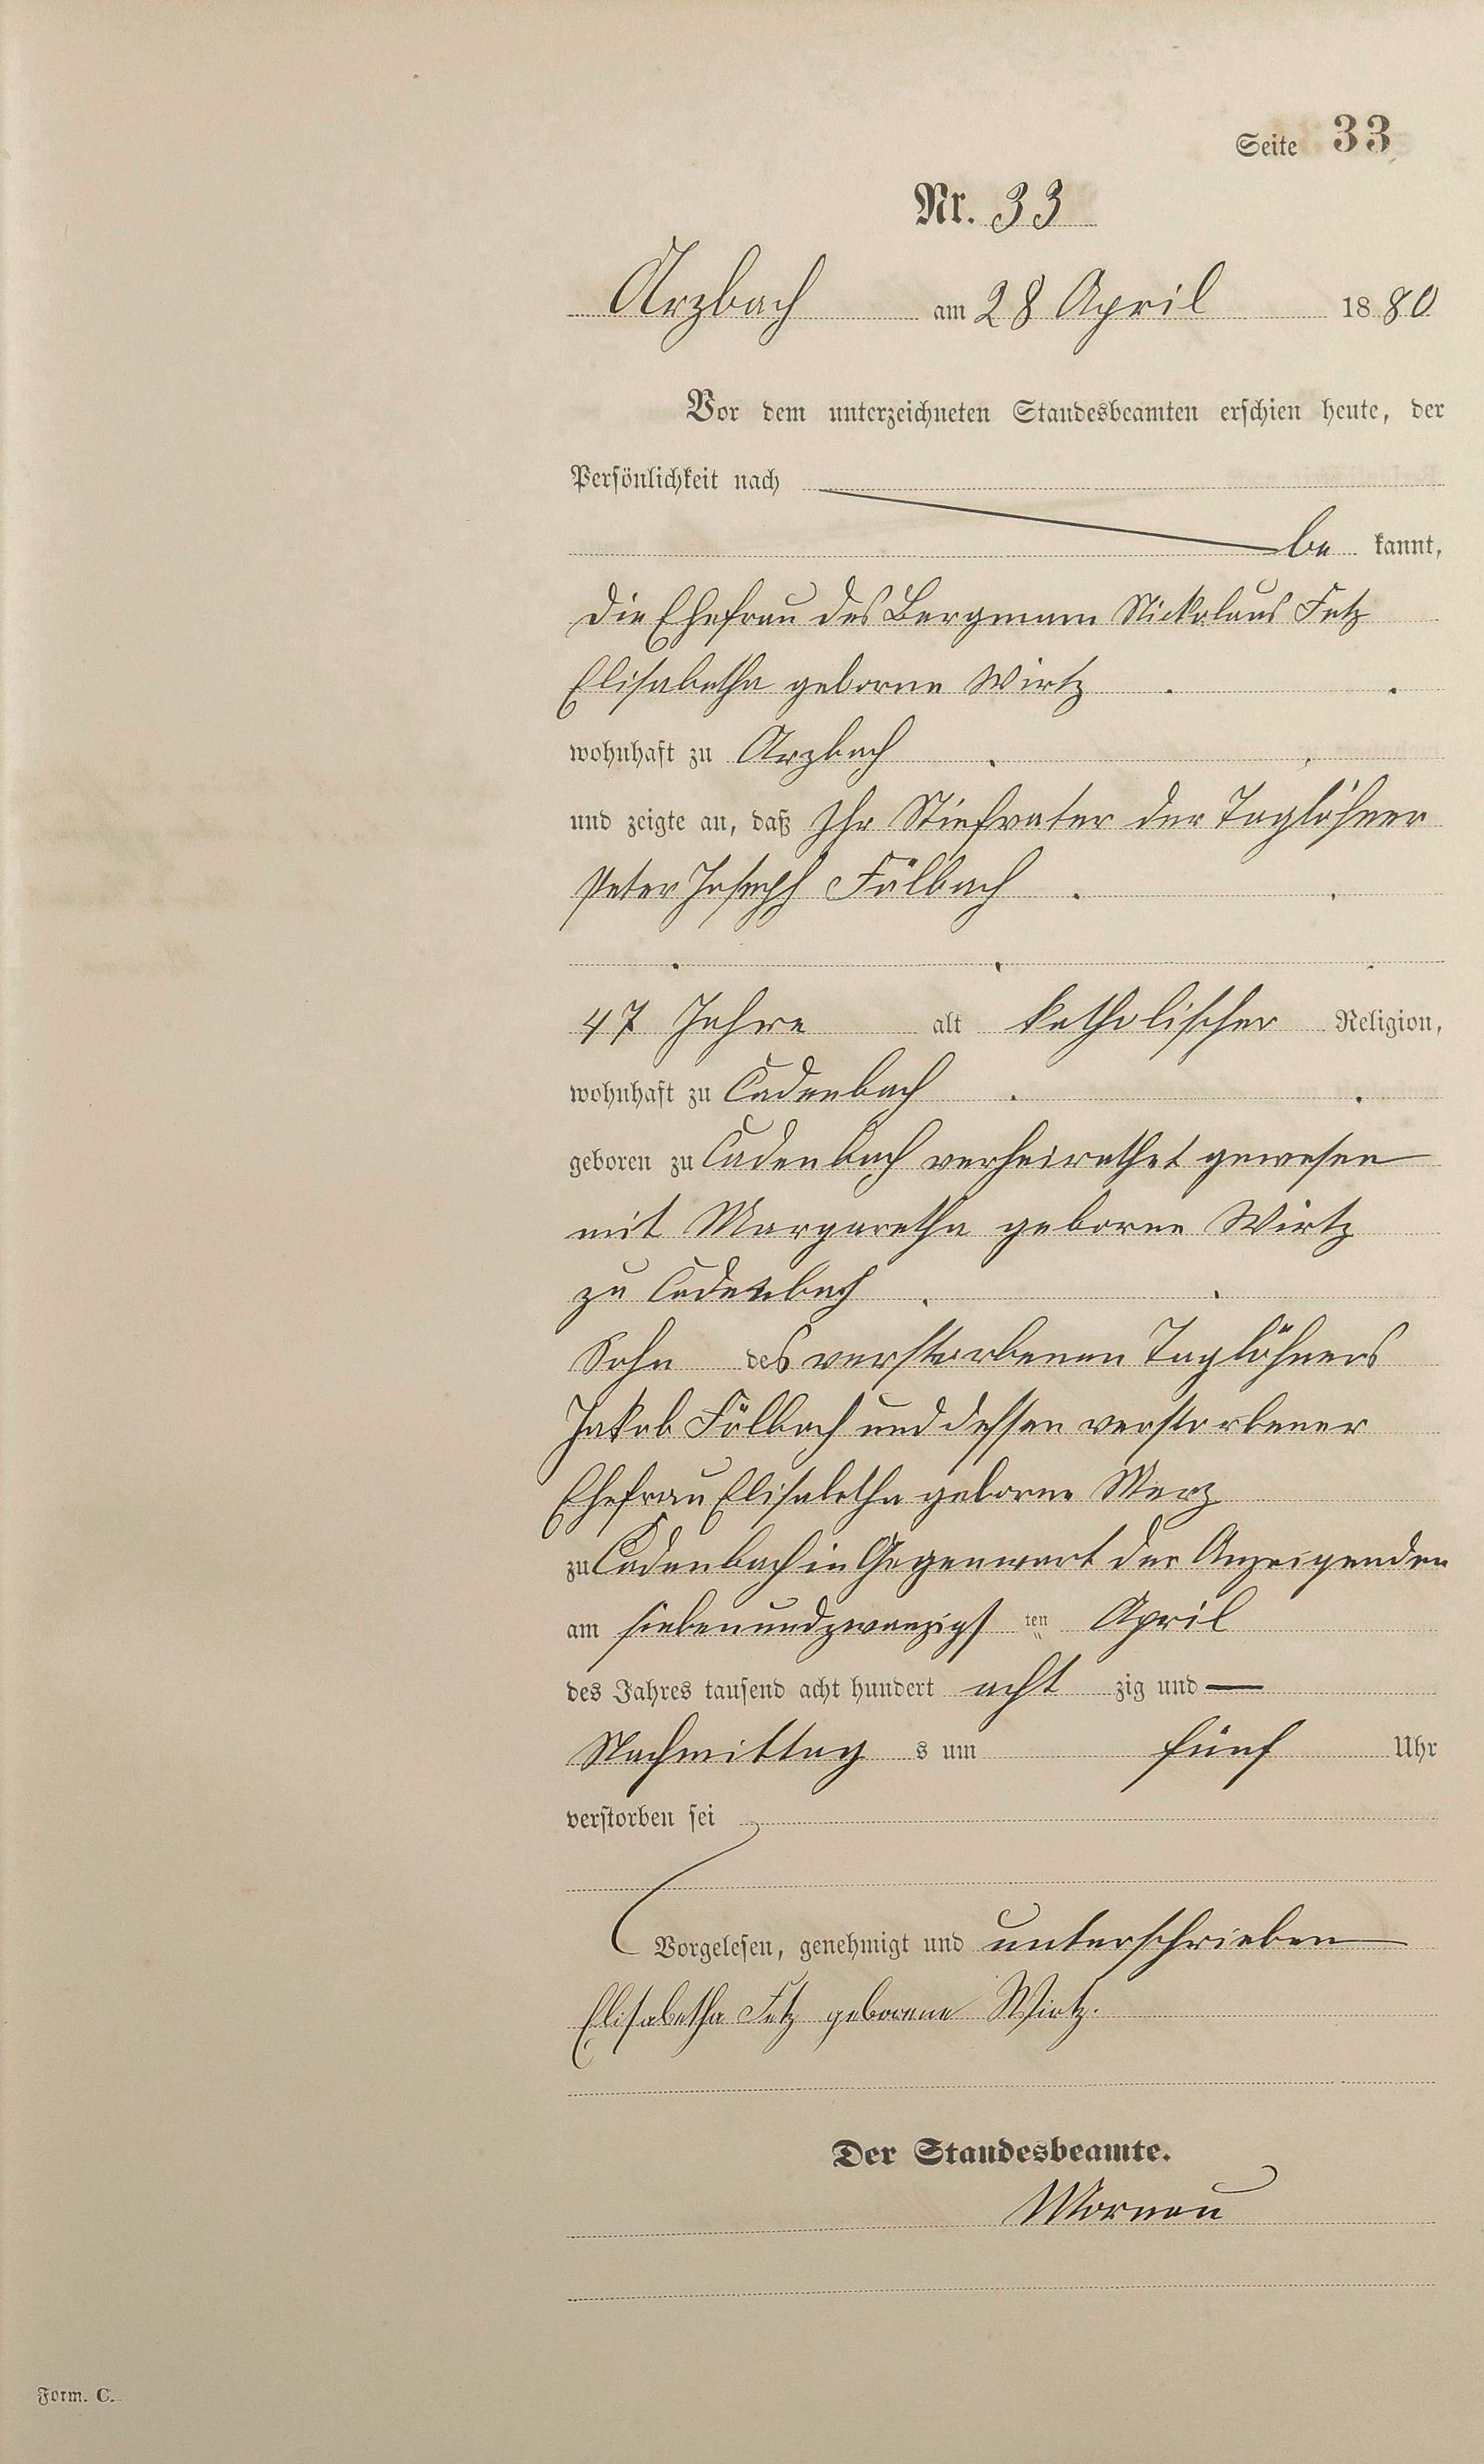 Seite 33
Nr. 33
Arzbach am 28 April 1880
Vor dem unterzeichneten Standesbeamten erschien heute, der
Persönlichkeit nach
be kannt,
die Ehefrau des Bergmann Nickolaus Fetz
Elisabetha geborne Wirtz
wohnhaft zu Arzbach
und zeigte an, daß Ihr Stiefvater der Taglöhner
Peter Joseph Fölbach
47 Jahre alt katholischer Religion,
wohnhaft zu Cadenbach
geboren zu Cadenbach verheirathet gewesen
mit Margaretha geborne Wirtz
zu Cadenbach
Sohn des verstorbenen Taglöhners
Jakob Fölbach und dessen verstorbener
Ehefrau Elisabetha geborne Merz
zu Cadenbach in Gegenwart der Anzeigenden
am siebenundzwanzigs ten April
des Jahres tausend acht hundert acht zig und
Nachmittag s um fünf Uhr
verstorben sei
Vorgelesen, genehmigt und unterschrieben
Elisabetha Fetz geborene Wirtz.
Der Standesbeamte.
Mornau
Form. C.